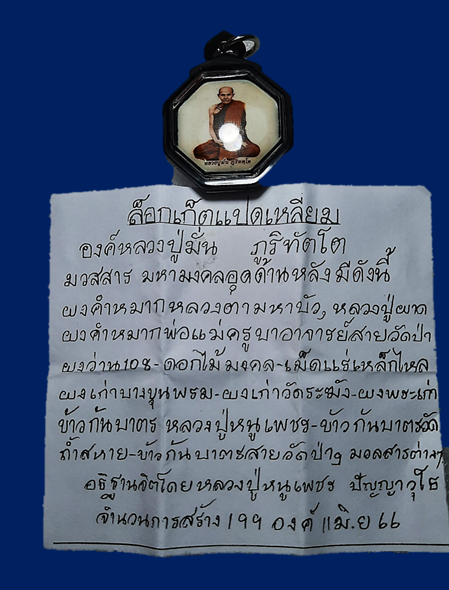 หลวงปู่มั่น ภูริทตฺโต
ล็อกเก็ตแปดเหลี่ยม
องค์หลวงปู่มั่น ภูริทัตโต
มวลสาร มหามงคลอุดด้านหลังมีดังนี้
ผงคำหมากหลวงตามหาบัว, หลวงปู่ผาด
ผงคำหมากพ่อแม่ครูบาอาจารย์สายวัดป่า
ผงว่าน108-ดอกไม้มงคล-เม็ดแร่เหล็กไหล
ผงเก่าบางขุนพรม-ผงเก่าวัดระฆัง-ผงพระเก่า
ข้าวก้นบาตร หลวงปู่หนูเพชร-ข้าวก้นบาตรวัด
ถ้ำสหาย-ข้าวก้นบาตรสายวัดป่าๆ มวลสารต่างๆ
อธิฐานจิตโดยหลวงปู่หนูเพชร ปัญญาวุโธ
จำนวนการสร้าง 199 องค์ เม.ย 66